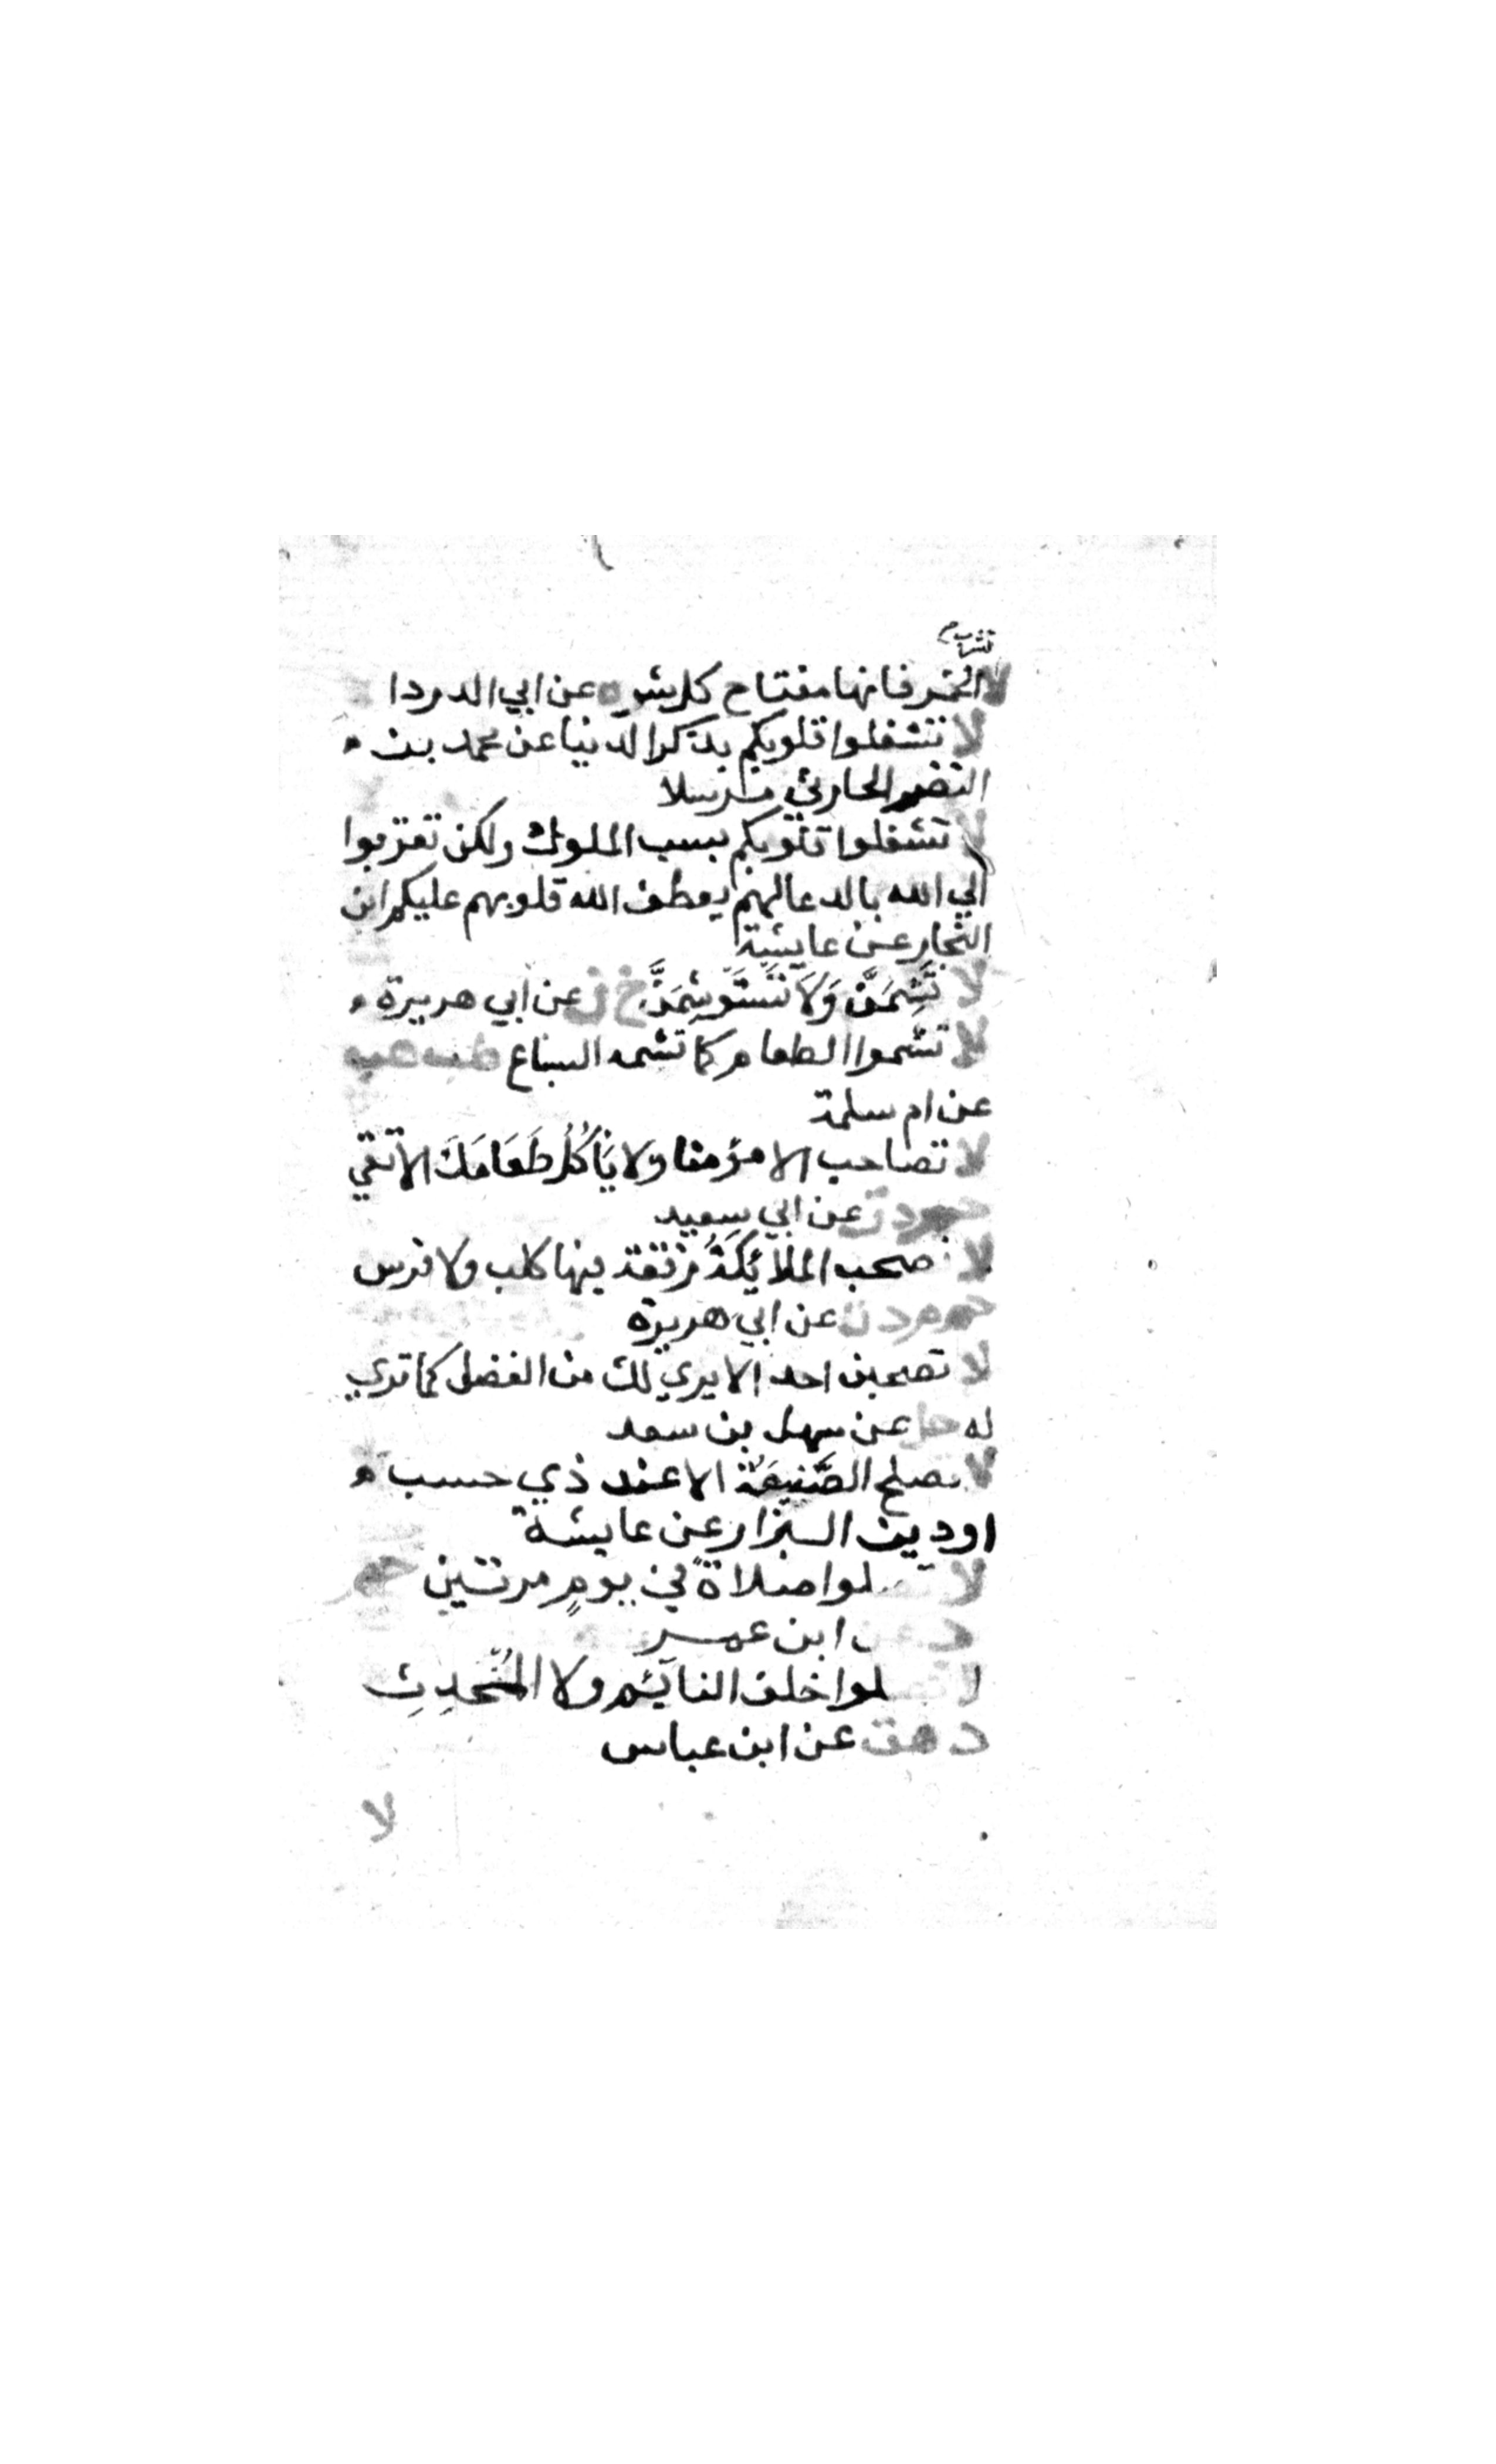 تشرب
لا الخمر فانها مفتاح كل شر ه عن ابي الدردا
لا تشغلوا قلوبكم بذكر الدنيا عن محمد بن
النضر الحارثي مرسلا
لا تشغلوا قلوبكم بسب الملوك ولكن تقربوا
الي الله بالدعا لهم يعطف الله قلوبهم عليكم ابن
النجار عن عايشة
لا تَشِمَنَّ وَلَا تَسْتَوْشِمَنَّ خ ن عن ابي هريرة
لا تشموا الطعام كما تشمه السباع طب هب
عن ام سلمة
لا تصاحب الا مؤمنا ولا يَأكُلُ طَعَامَكَ الا تقي
حم د ت عن ابي سعيد
لا تصحب الملائكةُ رفقة فيها كلب ولا جرس
حم م د ت عن ابي هريرة
لا تصحبن احد الا يري لك من الفضل كما تري
له حل عن سهل بن سعد
لا تصلح الصَّنيعَة الا عند ذي حسب
او دين البزار عن عايشة
لا تصلوا صلاةً في يومٍ مرتين حم
د عن ابن عمر
لا تصلوا خلف النايم ولا المُتَحَدِثِ
د هق عن ابن عباس
لا